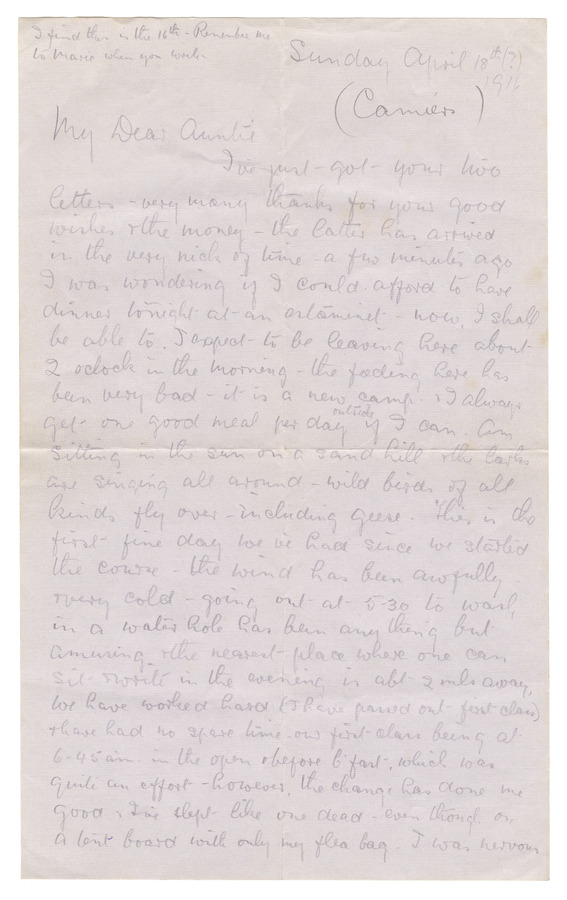 I find this is the 16th - Remember me
to Marie when you write.
Sunday April 18th (?)
191
(Camiers)
My Dear Auntie
I've just - got - your two
letters - very many thanks for your good
wishes & the money - the latter has arrived
in the very nick of time - a few minutes ago
I was wondering if I could afford to have
dinner tonight at - an estaminet - now, I shall
be able to. I expect - to be leaving here about -
2 oclock in the morning - the feeding here has
been very bad - it is a new camp. & I always
get - one good meal per day outside if I can. Am
sitting in the sun on a sand hill & the larks
are singing all around - wild birds of all
kinds fly over - including geese. This is the
first - fine day we've had since we started
the course - the wind has been awfully
& very cold - going out - at - 5-30 to wash,
in a water hole has been anything but
amusing & the nearest - place where one can
sit - & write in the evening is abt - 2 mls away.
We have worked hard (I have passed out - first class)
& have had no spare time - our first class being at
6-45 am. in the open & before b'fast, which was
quite an effort - however, the change has done me
good & I've slept like one dead - even though on
a tent board with only my flea bag. I was nervous